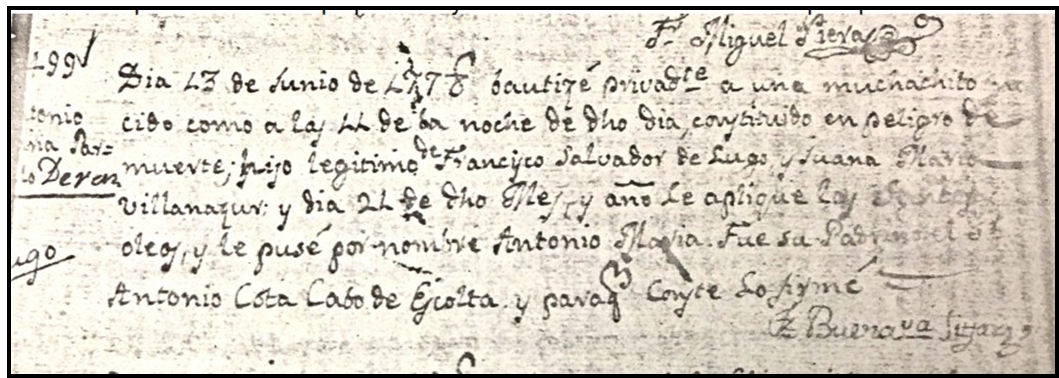 Fr. Miguel Piera
499
Dia 13 de Junio de 1778 bautizé privadte a una muchachito na
tonio
cido como a las 11 de la noche de dho dia, constituido en peligro de
ria Par=
muerte; hijo legitimo de Francisco Salvador de Lugo, y Juana Maria
lo Deran
Villanazur: y dia 21 de dho Mes, y año Le aplique los Santos
oleos, y le pusé por nombre Antonio Maria. Fue su Padrino el
ugo
Antonio Cota Cabo de Escolta. y paraq Conste Lo firmé
Fr. Buenava Sitjar